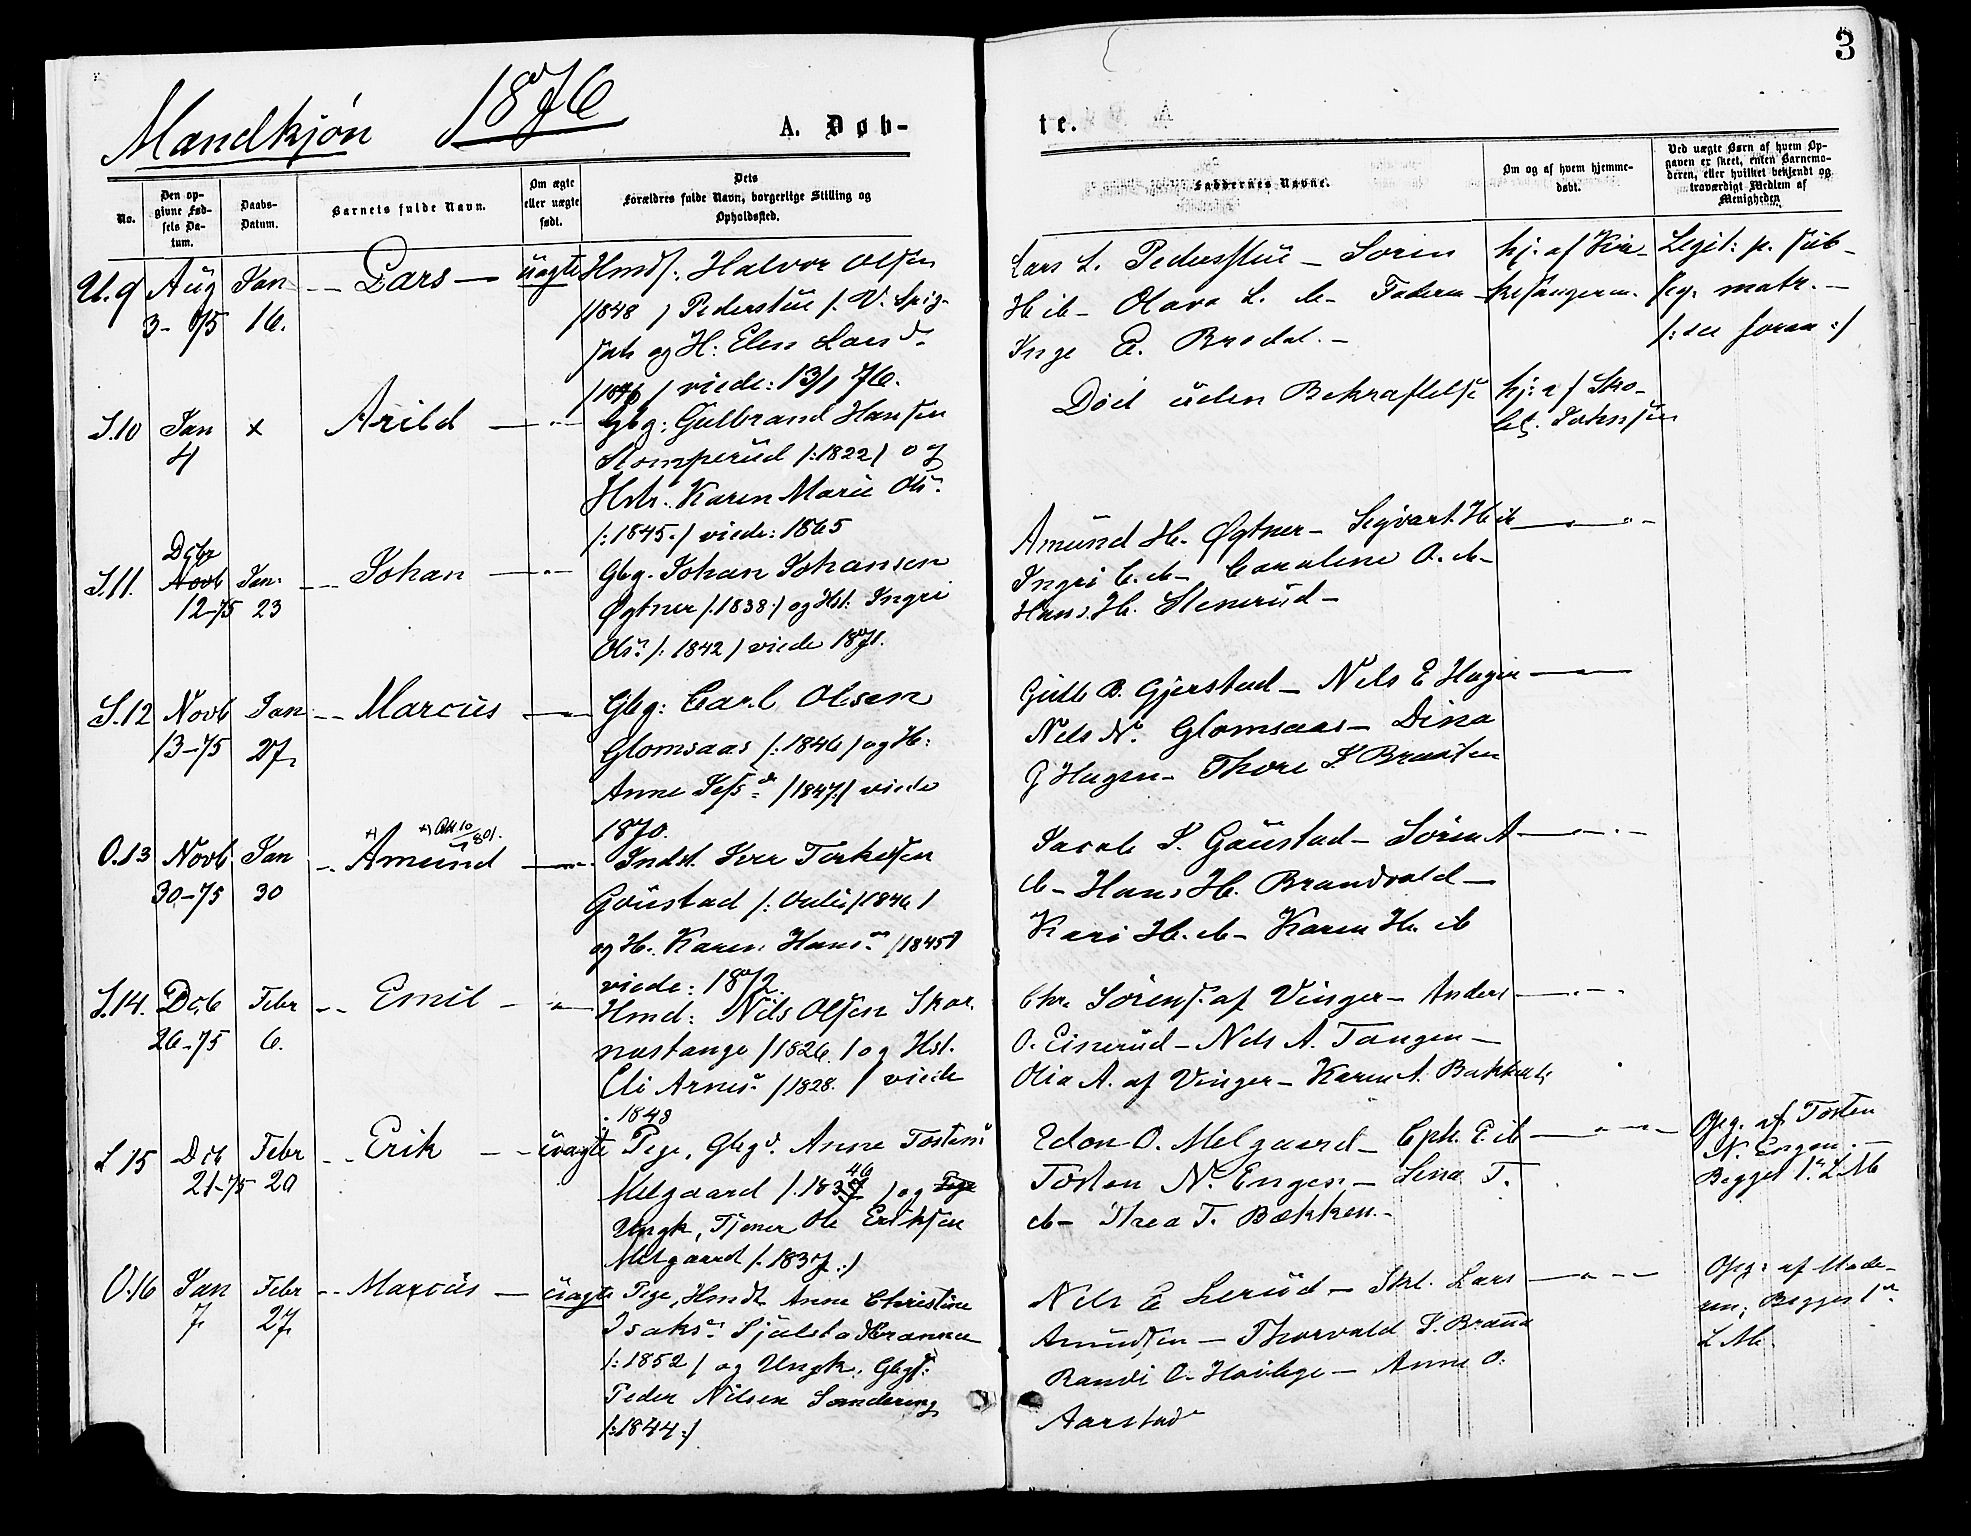 3
Mandkjón 1876
A. Døb-
te.
No.
Den op-
givne Fød-
sels Da-
tum.
Daabs-
Datum.
Barnets fulde Navn.
Om ægte
eller uægte
født.
Dets
Forældres fulde Navn, borgerlige Stilling og
Opholdssted.
Faddernes Navne.
Om og af hvem hjemme-
døbt.
Ved uægte Børn af hvem Op-
gaven er skeet, enten Barnemo-
deren, eller hvilket bekjendt og
troværdigt Medlem af
Menigheden
U. 9 Aug Jan Lars üagte Hmdſ: Halvor Olſen
3-75 16. /1848 / Pederstüe
og H: Elen
/ viede: 13/1 76.
Lars L. Pedersſtüe - Soren
H ib - Olava L. ib -
Inge E. Brodal. -
hj: af
Legit: p. süb-
ſeq. matr. -
/: see foran :/
S.10 Jan x Arild Gbg: Gulbrand Hanſen
4 Stomperüd /: 1822 / og
Hstr. Karen Marie Ols.
/: 1845. / viede: 1865
Död üden Bekræftelſe
hj: af
Johnſen
S.11. Dcbr Novb Jan: Johan Gbg. Johan Johansen
12-75 23 Øgtner /: 1838:/ og Hst: Ingri
Ols. /: 1842 / viede 1871.
Amünd H. Øgtner - Sigvart H ib
Ingri C. ib - Caroline O. ib -
Hans. H. Stenerüd -
S.12 Novb Jan Marcüs Gbg: Carl Olsen
13-75 27. Glomsaas /: 1846 / og H:
Anne /1847:/ viede
1870.
Gulb B. Gjerstad - Nels E Hagen
Nels N. Glomsaas - Dina
G Hagen - Thore S. Braaten
O.13 Novb. Jan x) Amünd x) Indst. Iver Torkelſen
30-75 30 Goüstad /1846 /
og H. Karen Hans. /1845/
viede: 1872.
Jacob S. Goüstad - Sören A
ib - Hans H. Brandvold -
Kari H. ib - Karen H. ib
S.14. Dcb Febr Emil Hmd: Nils Olſen Skar-
26-75 6. nastange /1826. / og Hst.
Eli Arnes. /1828. / viede
1848
Chr. Sörenſ. af Vinger - Anders
O. Einerüd - Nels A. Tangen -
Olia A. af Vinger - Karen A.
L 15 Dcb Febr Erik üagte Pige, Gbgd. Anne Tostens
21-75 20 Melgaard /: 1837 46 / og Pige
Ungk, Tjener Ole Erikſen
Melgaard /: 1837 :/
Edon O. Melgaard - E. ib
Tosten N. Engen - Lena T.
ib - Thea T. Bækken. -
Opg. af Tosten
N. Engen. -
Begges 1. L M
O.16 Jan Febr Marcüs üagte Pige, Hmdt. Anne Christine
7. 27. Isaks.
/: 1852 / og Ungk. Gbgſ:
Peder Nilsen Sandereng
/: 1844 :/
Nels E Lerüd - Skl. Lars
Amundſen - Thorvald S. Braaa
Randi O. - Anne O.
Aarstad
Opg: af Mode-
ren; Begges 1
L M.